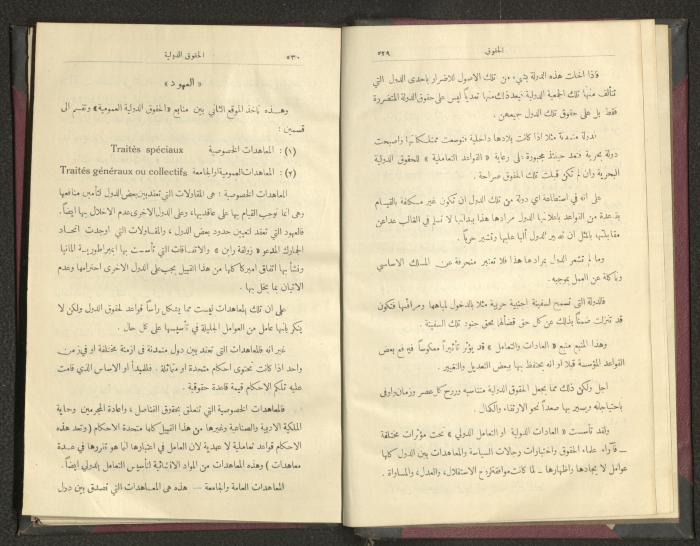 ٥٢٩ الحقوق
فاذا اخلت هذه الدولة بشيء من تلك الاصول للاضرار باحدى الدول التي
تتألف منها تلك الجمعية الدولية فيعد ذلك منها تعدياً ليس على حقوق الدولة المتضررة
فقط بل على حقوق تلك الدول جميعهن .
فدولة متمدنة مثلا اذا كانت بلادها داخلية فتوسعت ممتلكاتها واصبحت
دولة بحرية فتعد حينئذ مجبورة على رعاية « القواعد التعاملية » للحقوق الدولية
البحرية وان لم تكن قبلت تلك الحقوق صراحة .
على انه في استطاعة اي دولة من تلك الدول ان تكون غير مكلفة بالقيام
بقاعدة من القواعد باعلانها الدول مرادها هذا بيد انها لا تسلم في الغالب عندئذ من
مقابلتها بالمثل ان تصبر الدول ألبا عليها وتشهر حرباً .
وما لم تشعر الدول بمرادها هذا فلا تعتبر منحرفة عن المسلك الاساسي
وناكلة عن العمل بموجبه .
فالدولة التي تسمح لسفينة اجنبية حربية مثلا بالدخول لمياهها ومرافئها فتكون
قد تنزلت ضمناً بذلك عن كل حق قضائها بحق جنود تلك السفينة .
وهذا المنبع منبع « العادات والتعامل » قد يؤثر تأثيراً معكوساً فيرفع بعض
القواعد المؤسسة قبلا او انه يحتفظ بها ببعض التعديل والتغيير .
اجل ولكن ذلك مما يجعل الحقوق الدولية متناسبة وروح كل عصر وزمان واوفى
باحتياجاته ويسير بها صعداً نحو الارتقاء والكمال .
ولقد تأسست « العادات الدولية او التعامل الدولي » تحت مؤثرات مختلفة
ـ فآراء علماء الحقوق واختبارات رجالات السياسة والمعاهدات بين الدول كلها
عوامل لايجادها واظهارها ـ لما كانت موافقة لروح الاستقلال ، والعدل ، والمساواة .
٥٣٠ الحقوق الدولية
« العهود »
وهذه تاخذ الموقع الثاني بين منابع «الحقوق الدولية العمومية» وتقسم الى
قسمين :
(١) : المعاهدات الخصوصية Traités spéciaux
(٢) : المعاهدات العمومية او الجامعة Traités généraux ou collectifs
المعاهدات الخصوصية : هي المقاولات التي تعتقد بين بعض الدول لتأمين منافعها
وهي انما توجب القيام بها على عاقديها ، وعلى الدول الاخرى عدم الاخلال بها ايضاً .
فالعهود التي تعقد لتعيين حدود بعض الدول ، والمقاولات التي اوجدت اتحاد
الجمارك المدعو « زولفه راين » والاتفاقات التي تأسست بها امبراطورية المانيا
ونشأ بها اتفاق اميركا كلها من هذا القبيل يجب على الدول الاخرى احترامها وعدم
الاتيان بما يخل بها .
على ان تلك المعاهدات ليست مما يشكل رأساً قواعد لحقوق الدول ولكن لا
ينكر بانها عامل من العوامل الجليلة في تأسيسها على كل حال .
غير انه فالمعاهدات التي تعتقد بين دول متمدنة في ازمنة مختلفة او في زمن
واحد اذا كانت تحتوي احكام متحدة او متماثلة . فللمبدأ او الاساس الذي قامت
عليه تلكم الاحكام قيمة قاعدة حقوقية .
فالمعاهدات الخصوصية التي تتعلق بحقوق القناصل ، واعادة المجرمين وحماية
الملكية الادبية والصناعية وغيرها من هذا القبيل كلها متحدة الاحكام ( وتعد هذه
الاحكام قواعد تعاملية لا عهدية لان العامل في اعتبارها انما هو تقررها في عدة
معاهدات ) وهذه المعاهدات من المواد الانشائية لتأسيس التعامل الدولي ايضاً .
المعاهدات العامة والجامعة — هذه هي المعاهدات التي تصدق بين دول